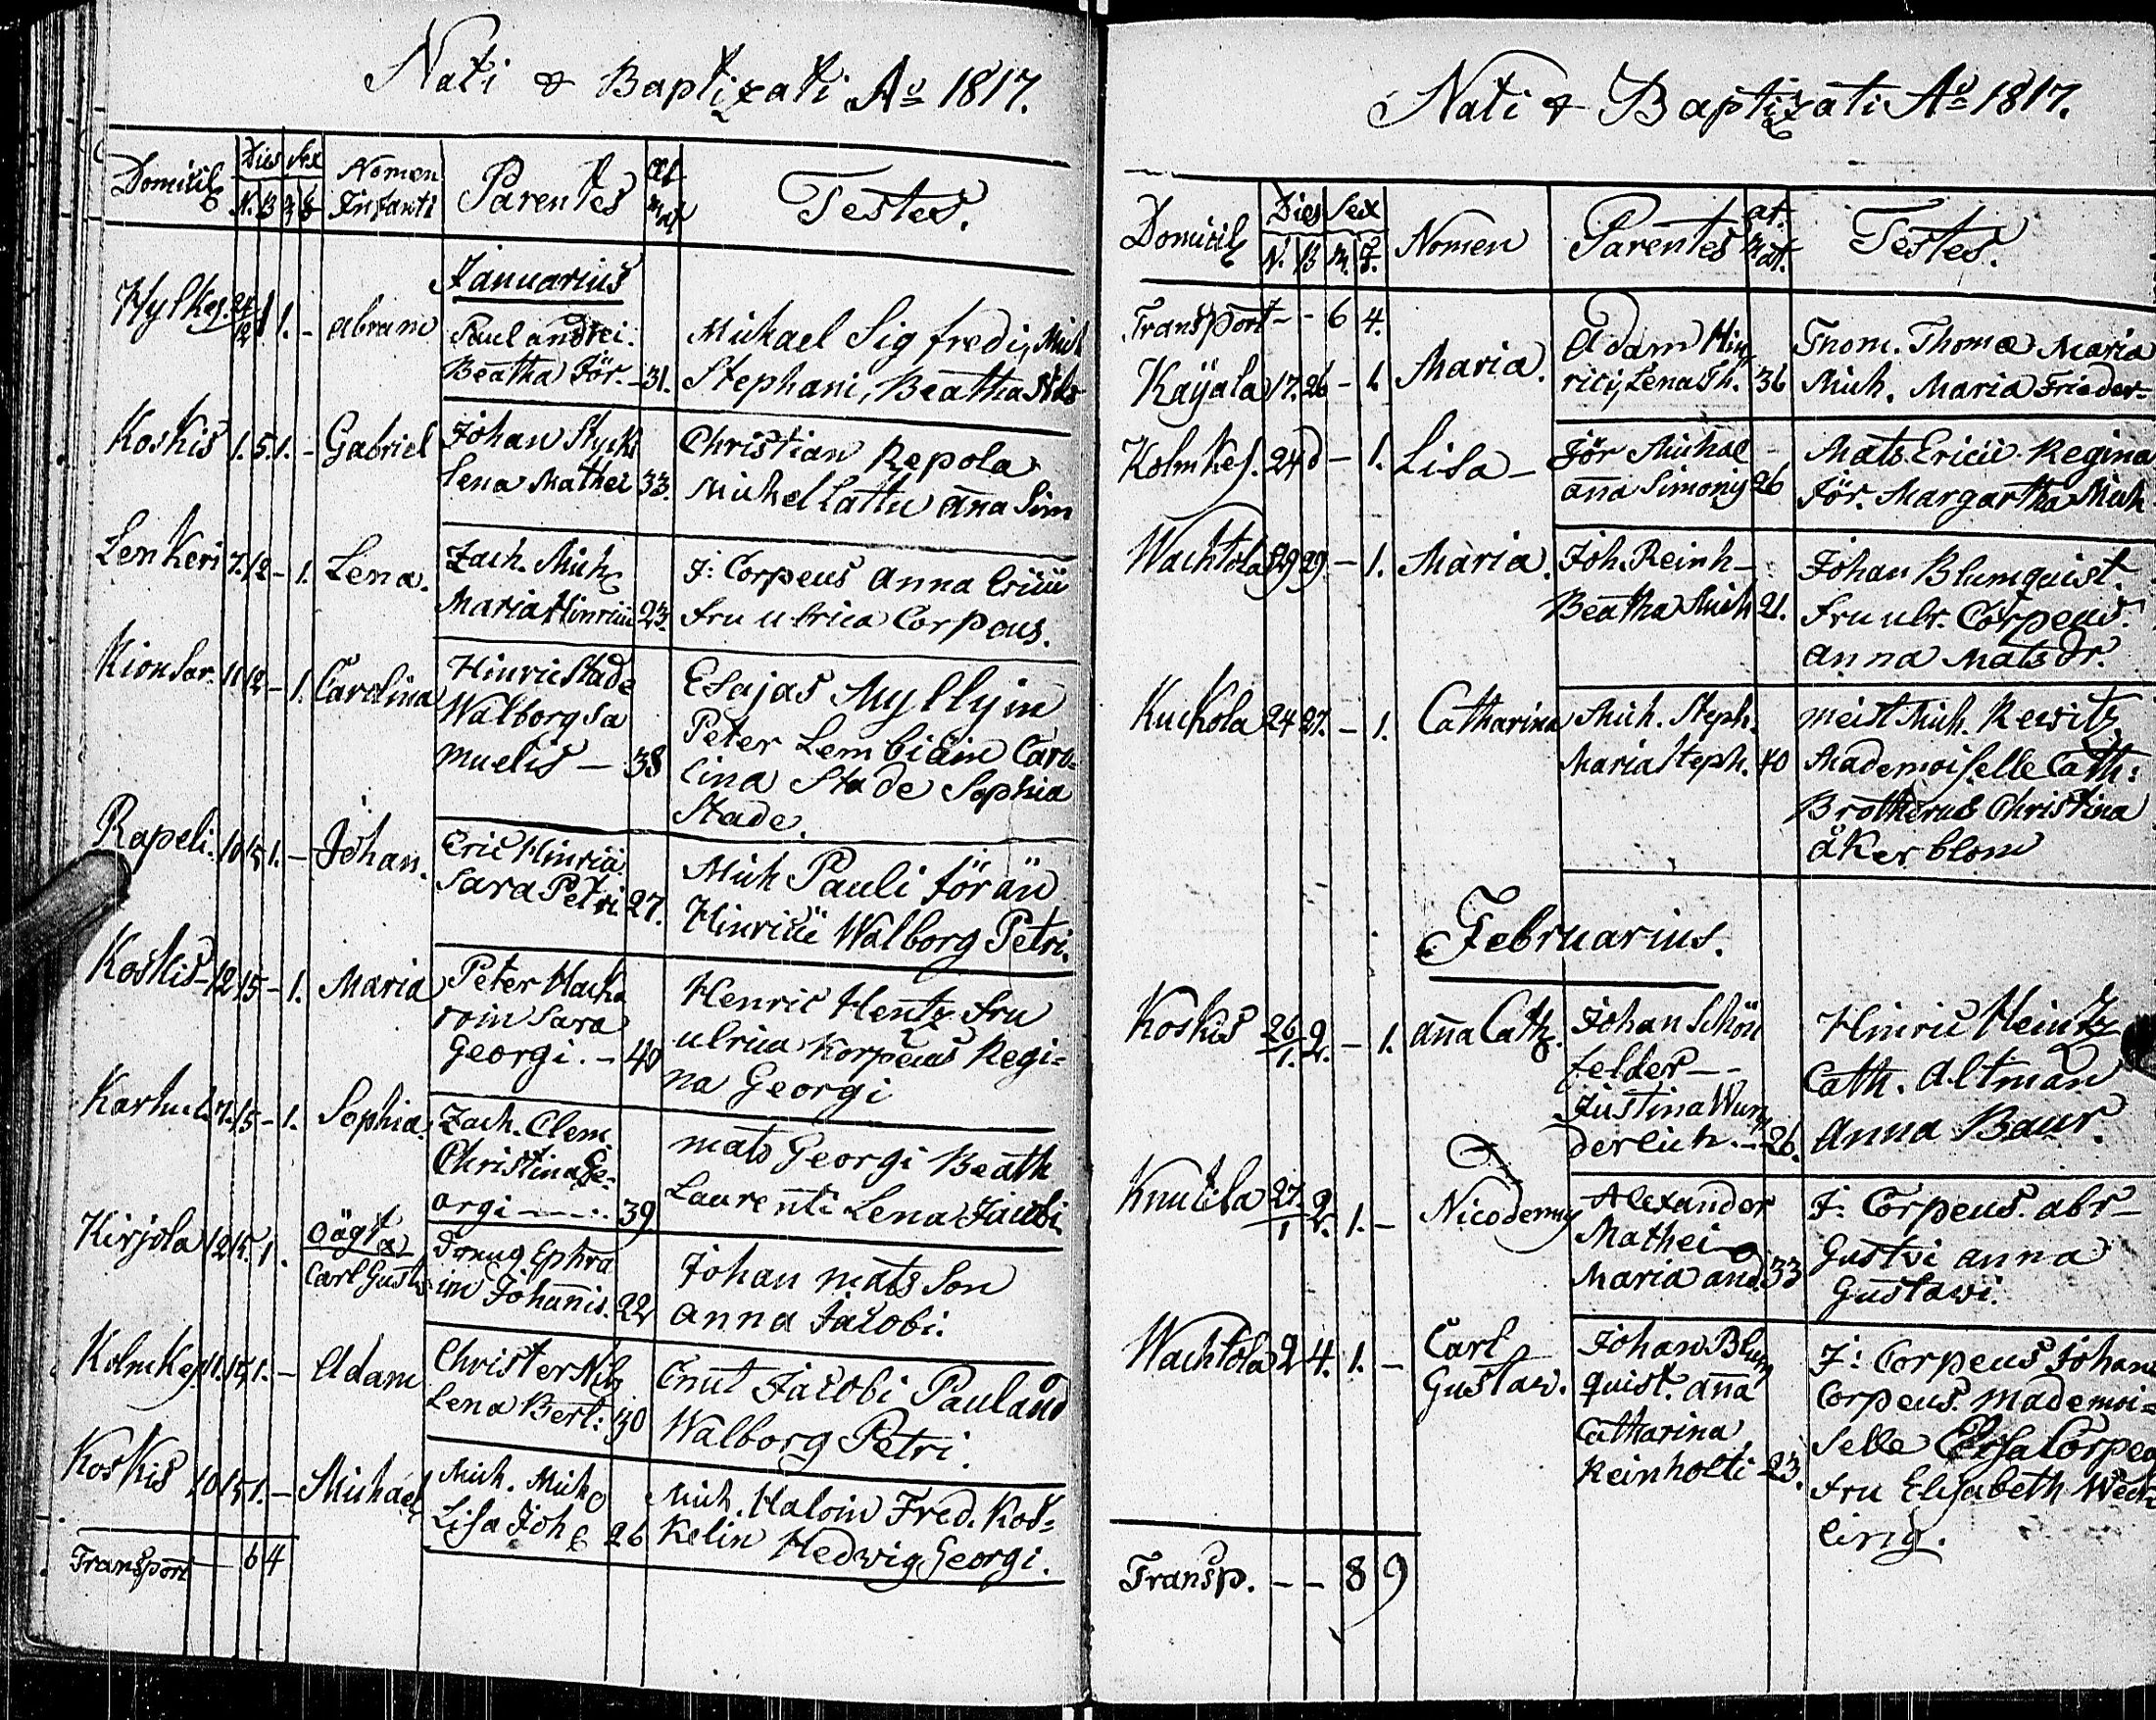 Nati & Baptizati Ao 1817.
Domicil Dies Sex Nomen Infanti Parentes Æt mat Testes.
N. B
Januarius
Hylkej. 24/12 1 1. - Abram Paul Andrei.
Beatha Jör. - 31.
Michael Sigfredi, Mich
Stephani, Beatha Nils
Koskis 1. 5. 1. - Gabriel Johan Styck
Lena Mathei 33.
Christian Repola
Michel Lattu Aña Sim
Lenkeri 7. 12 - 1. Lena. Zach. Mich
Maria Hinricii 23.
J: Corpeus Anna Ericii
fru Ulrica Corpeus.
Kionsar. 11 12 - 1. Carolina Hinric Stade
Walborg Sa
muelis - 38
Esajas Myllyin
Peter Lembiäin Caro-
lina Stade Sophia
Stade.
Rapeli. 10 15 1. - Johan. Eric Hinricii
Sara Petri 27.
Mich Pauli Jörän
Hinricii Walborg Petri.
Koskis - 12 15 - 1. Maria Peter Hacka
roin Sara
Georgi. - 40
Henric Hentz fru
Ulrica Korpeus Regi-
na Georgi
Karhula 12. 15 - 1. Sophia. Zach. Clem.
Christina Ge-
orgi - 39
Mats Georgi Beath
Laurenti Lena Jacobi
Kirjola 12 15. 1. oägta
Carl Gust
Dräng Ephra
im Johañis. 22
Johan Matsson
Anna Jacobi.
Kolmkej. 11. 15 1. - Adam Christer Nils
Lena Bert: 30
Cnut Jacobi Paul And
Walborg Petri.
Koskis 10 15 1. - Michael Mich. Mich
Lisa Joh 26
Mich. Haloin Fred. Kos-
kelin Hedwig Georgi.
Transport - 6 4
Nati & Baptizati Ao 1817.
Domicil Dies Sex Nomen Parentes æt. Mat. Testes.
N. B M. F.
Transport - - 6 4.
Käyälä 17. 26 - 1. Maria. Adam Hin
rici, Lena Th. 36
Thom. Thomæ Maria
Mich. Maria Frieder-
Kolmkej. 24 d - 1. Lisa - Jör Michael
Aña Simonis 26
Mats Ericii Regina
Jör. Margartha Mich
Wachtola 29 29 - 1. Maria. Joh. Reinh -
Beatha Mich 21.
Johan Blumquist.
fru Ulr. Corpeus.
Anna Mats dr.
Kuckola 24 27. - 1. Catharina Mich. Steph.
Maria Steph. 40
Meist Mich. Rewitz
Mademoiselle Cath:
Brotherus Christina
Åkerblom
Februarius.
Koskis 26/1. 2. - 1. Aña Cath. Johan Schön
felder - -
Justina Wun
derlich. - 26.
Hinric Heintz
Cath. Altman
Anna Baur.
Knutila 27./1 2. 1. - Nicodemus Alexander
Mathei
Maria And. 33
J: Corpeus. Abr -
Gustvi Anna
Gustawi.
Wachtola 2 4. 1. - Carl
Gustav.
Johan Blum
quist. Aña
Catharina
Reinholti - 23.
J: Corpeus Johan
Corpeus. Mademoi-
selle Corpeus
fru Elisabeth
ling.
Transp. - - 8 9